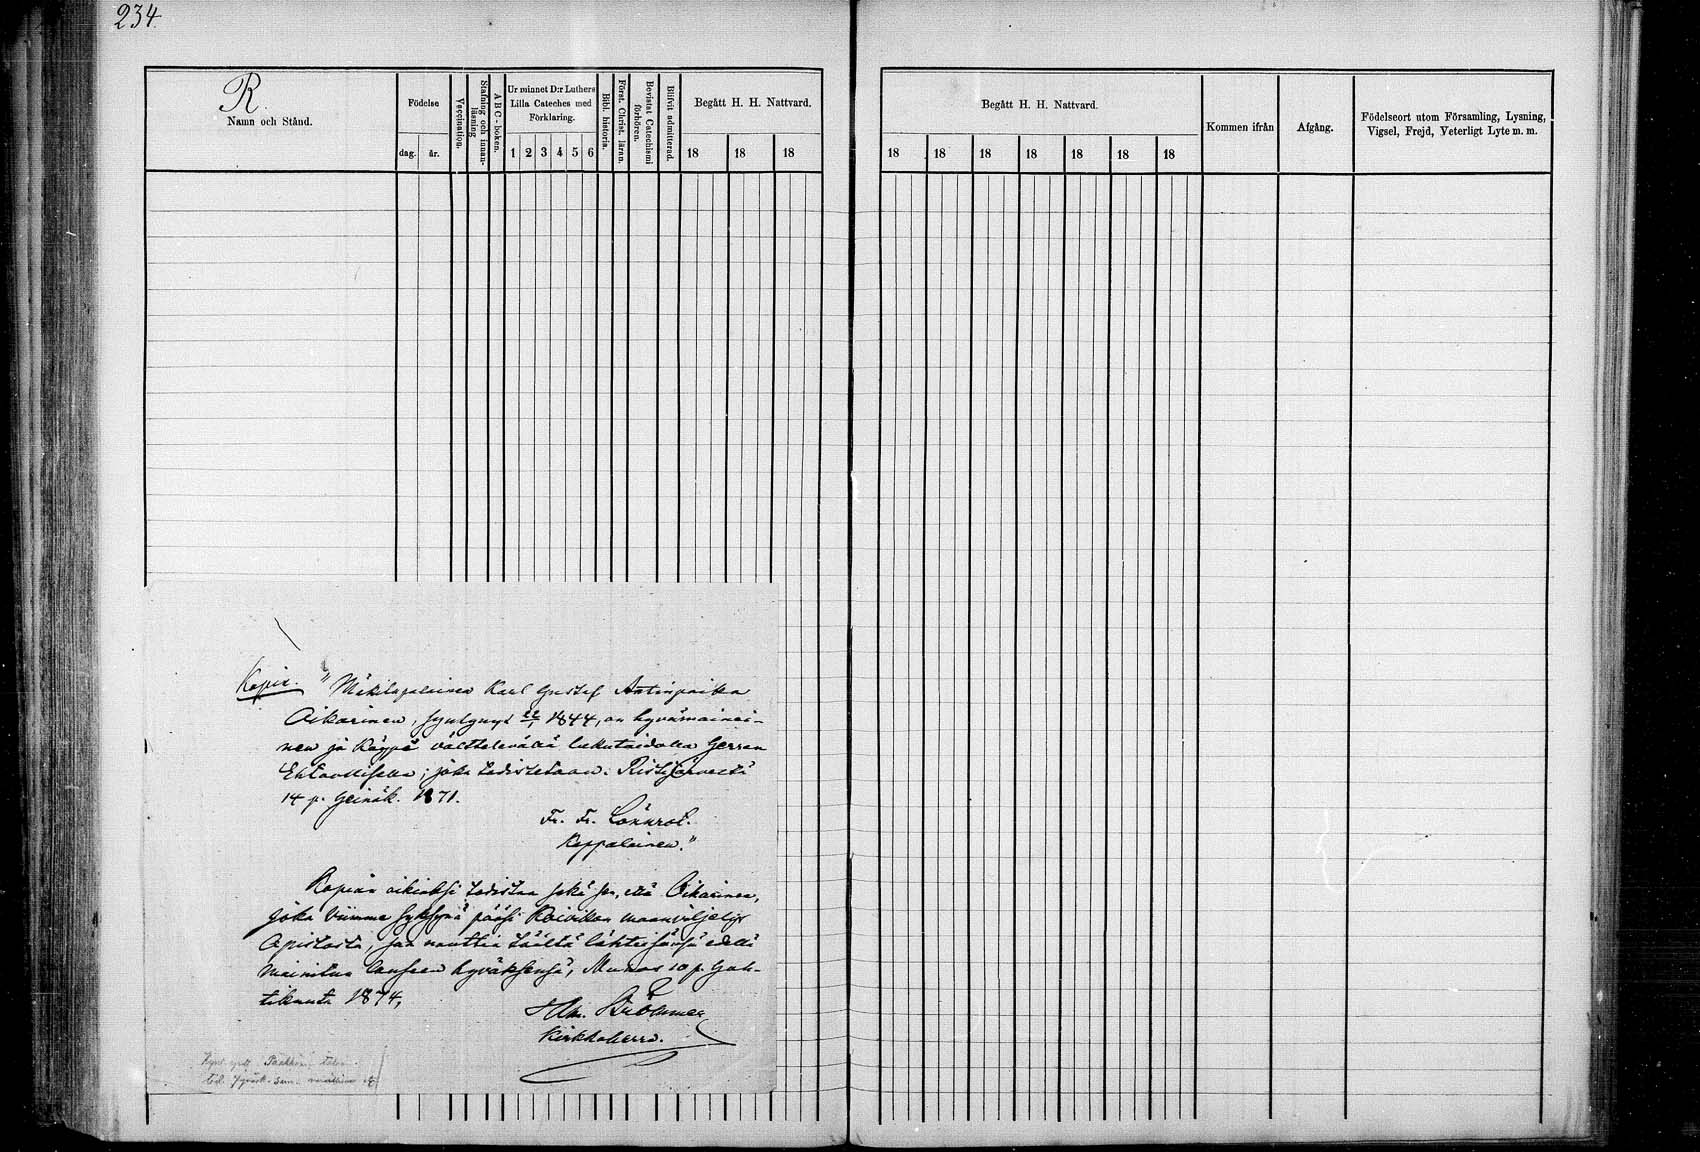 234.
R.
Namn och Stånd.
Födelse
dag. år.
Vaccination.
Stafning och innan-
läsning
ABC-boken.
Ur minnet D:r Luthers
Lilla Cateches med
Förklaring.
1 2 3 4 5 6
Bibl. historia.
Först. Christ. läran.
Bevistat Catechismi
förhören.
Blifvit admitterad.
Begått H. H. Nattvard.
18 18 18
Begått H. H. Nattvard.
18 18 18 18 18 18 18
Kommen ifrån
Afgång.
Födelseort utom Församling, Lysning,
Vigsel, Frejd, Veterligt Lyte m. m.
Kopia. "Mäkitupalainen Karl Gustaf Antinpoika
Oikarinen, syntynyt 22/1 1844, on hyvämainei-
nen ja käypä välttelevällä lukutaidolla Herran
Ehtoollisella; joka todistetaan. Ristijärveltä
14 p. Heinäk. 1871.
Fr. Fr. Lönnrot.
Kappalainen."
Kopian oikiaksi todistaa sekä sen, että Oikarinen,
joka viimme syksynä pääsi Koivikon maanviljelys
Opistosta, saa nauttia täältä lähteissänsä edellä
mainitun lauseen hyväksensä, Muhos 10 p. Huh-
tikuuta 1874,
Kirkkoherra.